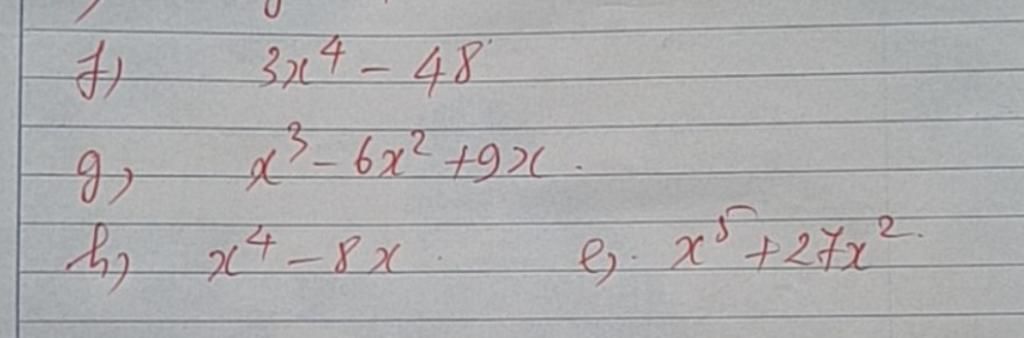 f) 3x⁴ - 48
g, x³ - 6x² + 9x.
h, x⁴ - 8x. e,. x⁵ + 27x².